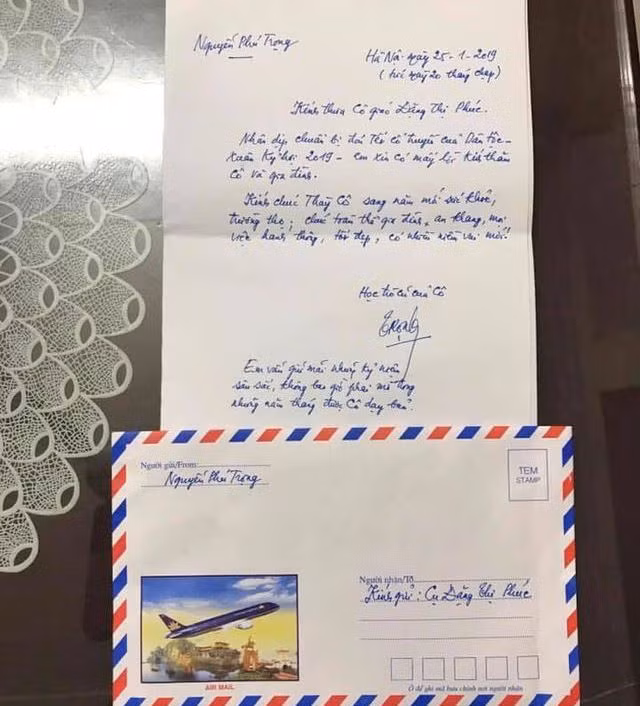 Nguyễn Phú Trọng
Hà Nội ngày 25-1-2019
(tức ngày 20 tháng chạp)
Kính thưa Cô giáo Đặng Thị Phúc.
Nhân dịp chuẩn bị đón Tết cổ truyền của Dân tộc-
Xuân Kỷ hợi 2019 - em xin có mấy lời kính thăm
cô và gia đình.
Kính chúc Thầy Cô sang năm mới sức khỏe,
trường thọ; chúc toàn thể gia đình, an khang, mọi
việc hanh thông, tốt đẹp, có nhiều niềm vui mới!
Học trò cũ của Cô
Trọng
Em vẫn giữ mãi những kỷ niệm
sâu sắc, không bao giờ phai mờ trong
những năm tháng được Cô dạy bảo.
Người gửi/From:
Nguyễn Phú Trọng
TEM
STAMP
Người nhận/To
Kính gửi: Cụ Đặng Thị Phúc
AIR MAIL
Ô để ghi mã bưu chính nơi người nhận